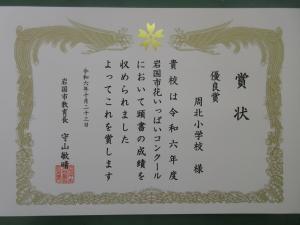 賞状
優良賞
周北小学校 様
貴校は令和六年度
岩国市花いっぱいコンクール
において頭書の成績を
収められました
よってこれを賞します
令和六年十月二十三日
岩国市教育長 守山敏晴